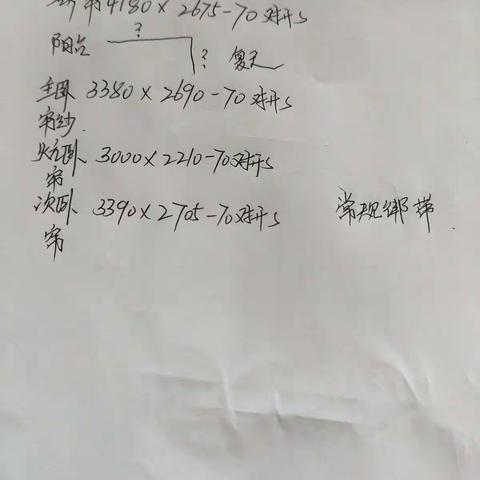 帘4180×2675-70对开S
阳台 ? ? 复尺
主卧 3380×2690-70对开S
帘纱
炕卧 3000×2210-70对开S
帘
次卧 3390×2705-70对开S 常规绑带
帘